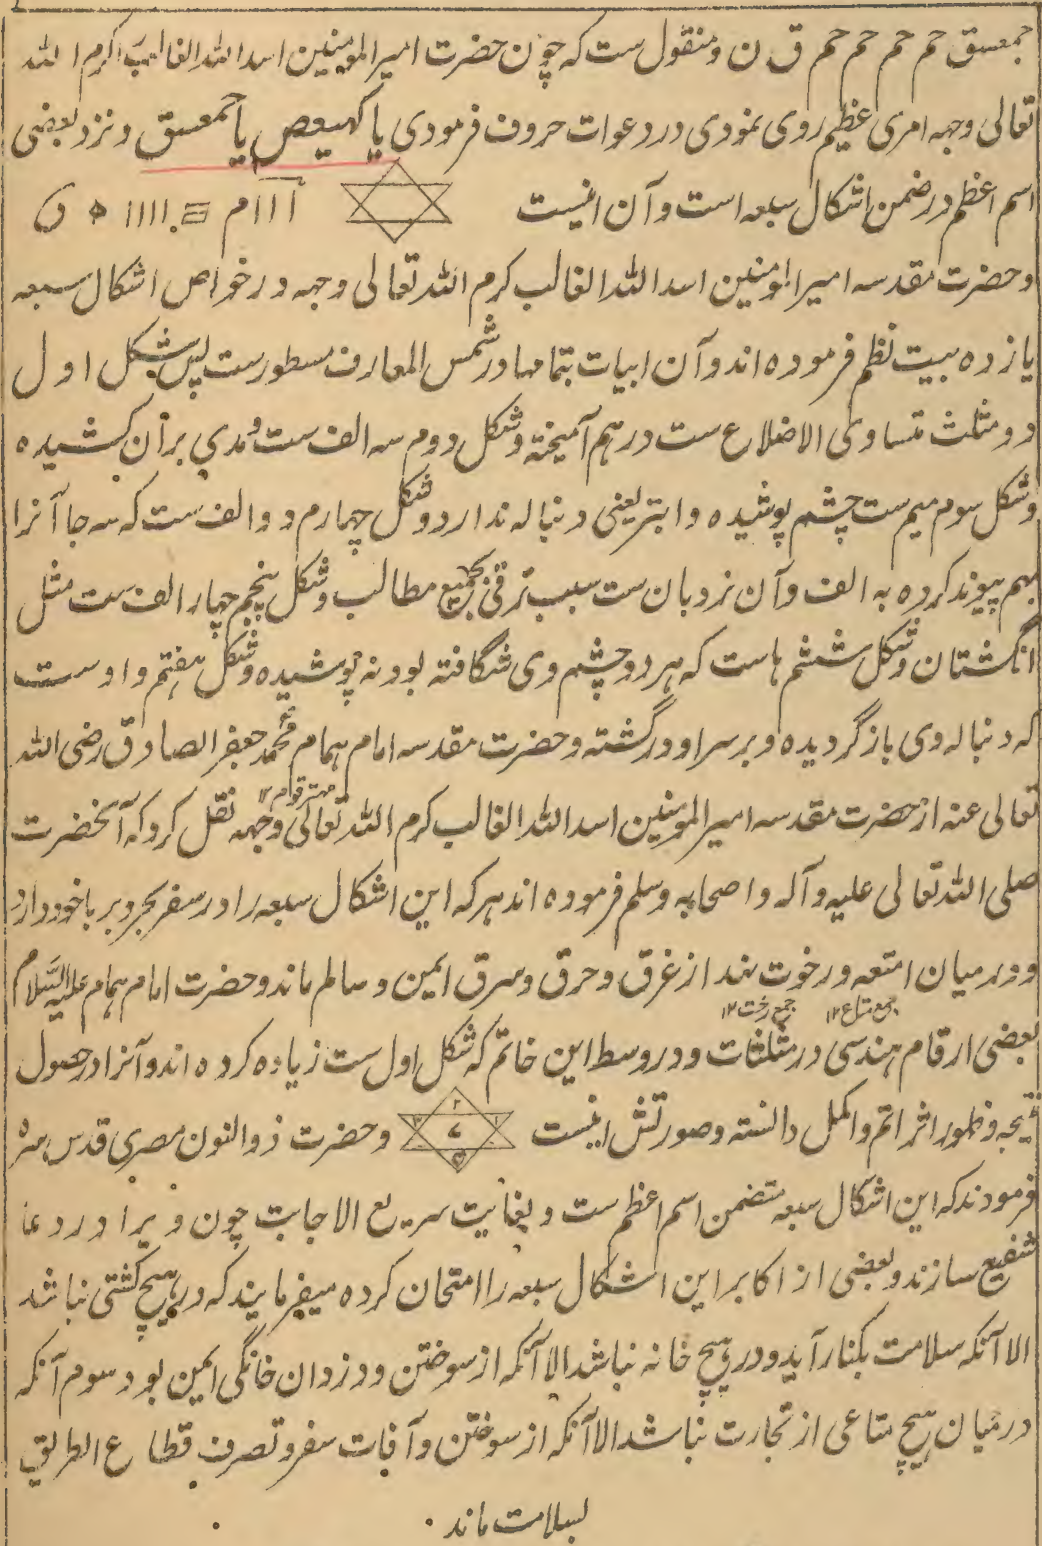 حمعسق حم حم حم حم ق ن و منقول ست که چون حضرت امیر المومنین اسد الله الغالب کرم الله
تعالی وجهه امری عظیم روی نمودی در دعوات حروف فرمودی یا کهیعص یا حمعسق و نزد بعضی
اسم اعظم در ضمن اشکال سبعه است و آن اینست
و حضرت مقدسه امیر المومنین اسد الله الغالب کرم الله تعالی وجهه در خواص اشکال سبعه
یازده بیت نظم فرموده اند و آن ابیات بتمامها در شمس المعارف مسطور ست پس شکل اول
دو مثلث متساوی الاضلاع ست در هم آمیخته و شکل دوم سه الف ست و مدی بر آن کشیده
و شکل سوم میم ست چشم پوشیده و ابتر یعنی دنباله ندارد و شکل چهارم دو الف ست که سه جا آنرا
بهم پیوند کرده به الف و آن نردبان ست سبب ترقی بجمیع مطالب و شکل پنجم چهار الف ست مثل
انگشتان و شکل ششم هاست که هر دو چشم وی شگافته بود نه پوشیده و شکل هفتم واو ست
که دنباله وی باز گردیده و بر سر او در گشته و حضرت مقدسه امام همام محمد جعفر الصادق رضی الله
مهتر قوم ۱۲
تعالی عنه از حضرت مقدسه امیر المومنین اسد الله الغالب کرم الله تعالی وجهه نقل کرد که آنحضرت
صلی الله تعالی علیه و آله و اصحابه وسلم فرموده اند هر که این اشکال سبعه را در سفر بحر و بر با خود دارد
و در میان امتعه و رخوت نهد از غرق و حرق و سرق ایمن و سالم ماند و حضرت امام همام علیه السلام
جمع متاع ۱۲ جمع رخت ۱۲
بعضی ارقام هندسی در مثلثات و در وسط این خاتم که شکل اول ست زیاده کرده اند و آنرا در حصول
نتیجه و ظهور اثر اتم و اکمل دانسته و صورتش اینست و حضرت ذوالنون مصری قدس سره
فرمودند که این اشکال سبعه متضمن اسم اعظم ست و بغایت سریع الاجابت چون ویرا در دعا
شفیع سازند و بعضی از اکابر این اشکال سبعه را امتحان کرده میفرمایند که در هیچ کشتی نباشد
الا آنکه سلامت بکنار آید و در هیچ خانه نباشد الا آنکه از سوختن و دزدان خانگی ایمن بود سوم آنکه
در میان هیچ متاعی از تجارت نباشد الا آنکه از سوختن و آفات سفر و تصرف قطاع الطریق
بسلامت ماند